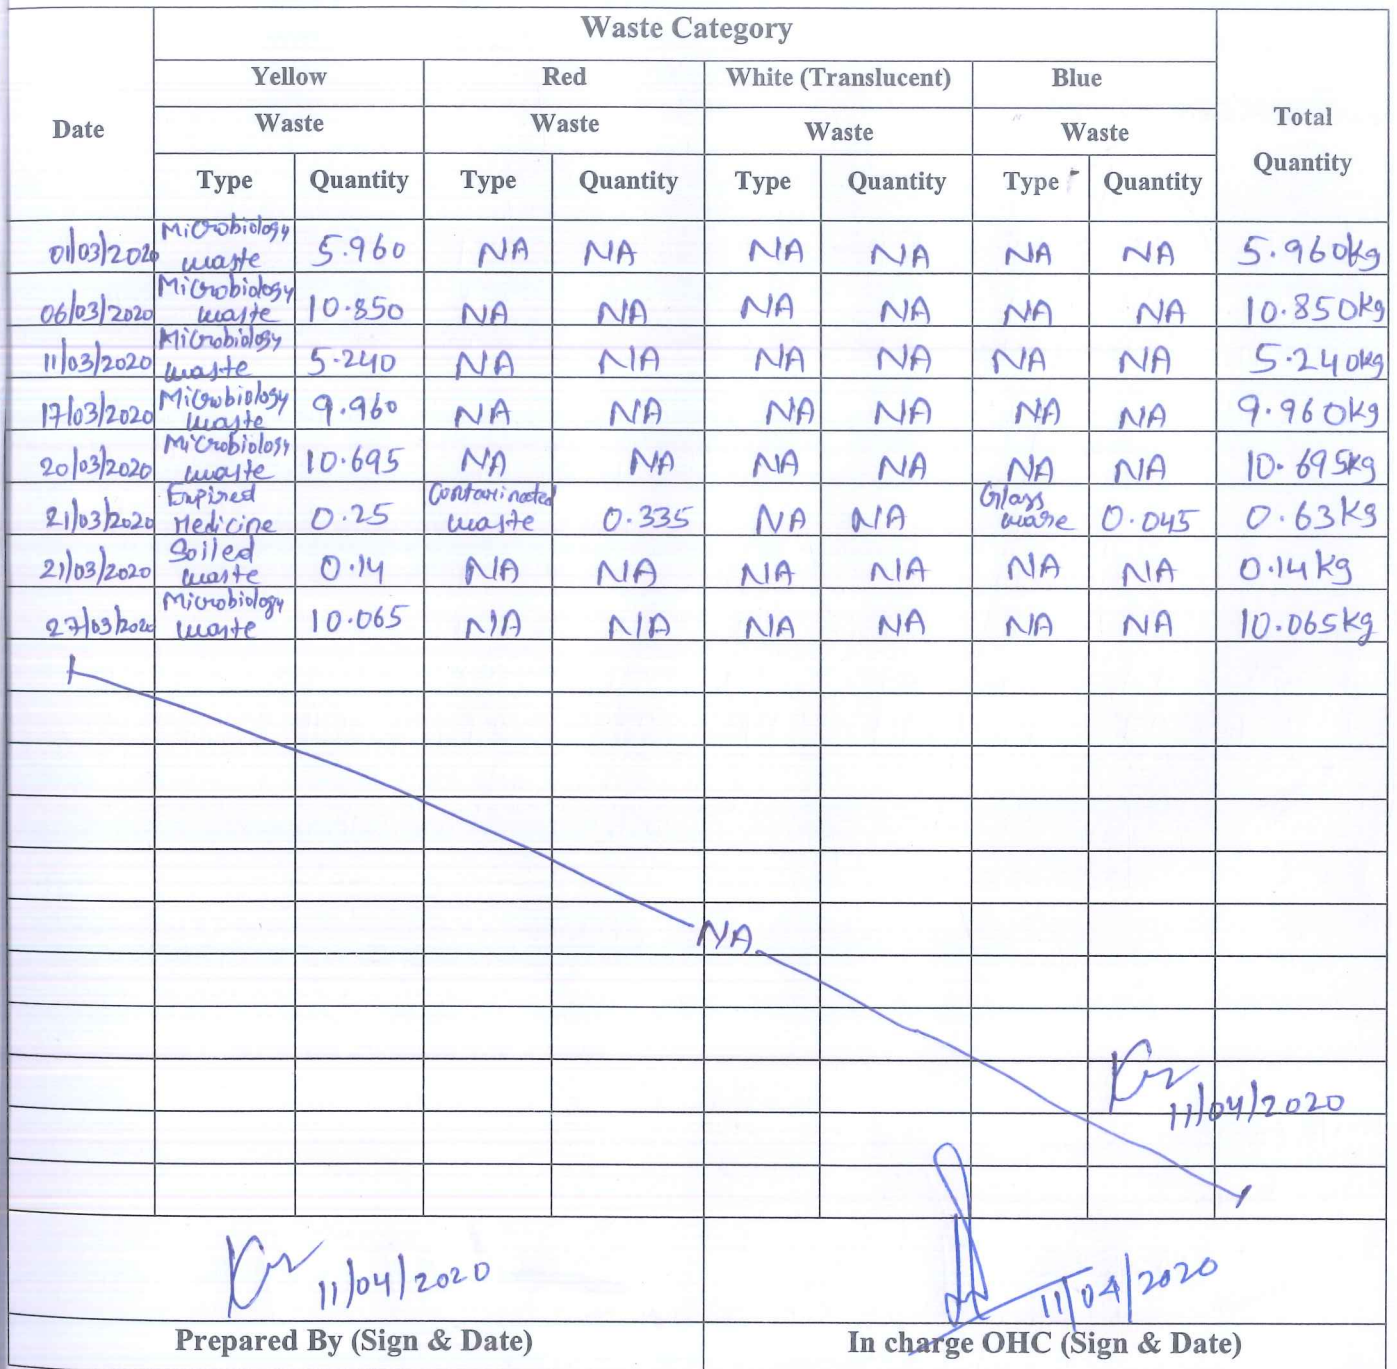 Waste Category
Date Yellow Red White (Translucent) Blue Total Quantity
Waste Waste Waste Waste
Type Quantity Type Quantity Type Quantity Type Quantity
01/03/2020 Microbiology waste 5.960 NA NA NA NA NA NA 5.960kg
06/03/2020 Microbiology waste 10.850 NA NA NA NA NA NA 10.850kg
11/03/2020 Microbiology waste 5.240 NA NA NA NA NA NA 5.240kg
17/03/2020 Microbiology waste 9.960 NA NA NA NA NA NA 9.960kg
20/03/2020 Microbiology waste 10.695 NA NA NA NA NA NA 10.695kg
21/03/2020 Expired Medicine 0.25 Contaminated waste 0.335 NA NA Glass ware 0.045 0.63kg
21/03/2020 Soiled waste 0.14 NA NA NA NA NA NA 0.14kg
27/03/2020 Microbiology waste 10.065 NA NA NA NA NA NA 10.065kg
NA
11/04/2020
11/04/2020 11/04/2020
Prepared By (Sign & Date) In charge OHC (Sign & Date)